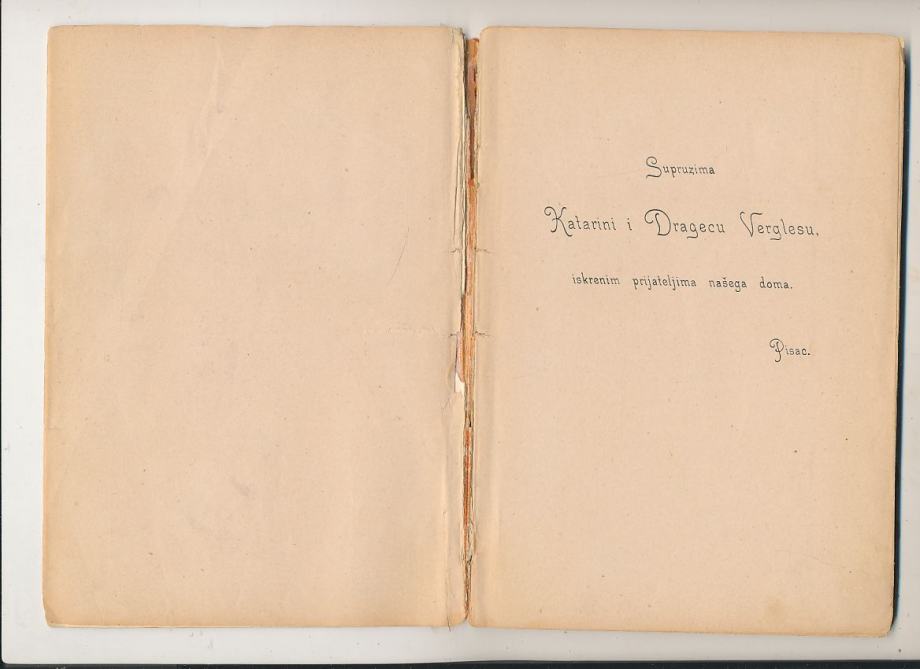 Supruzima
Katarini i Dragecu Verglesu,
iskrenim prijateljima našega doma.
Pisac.